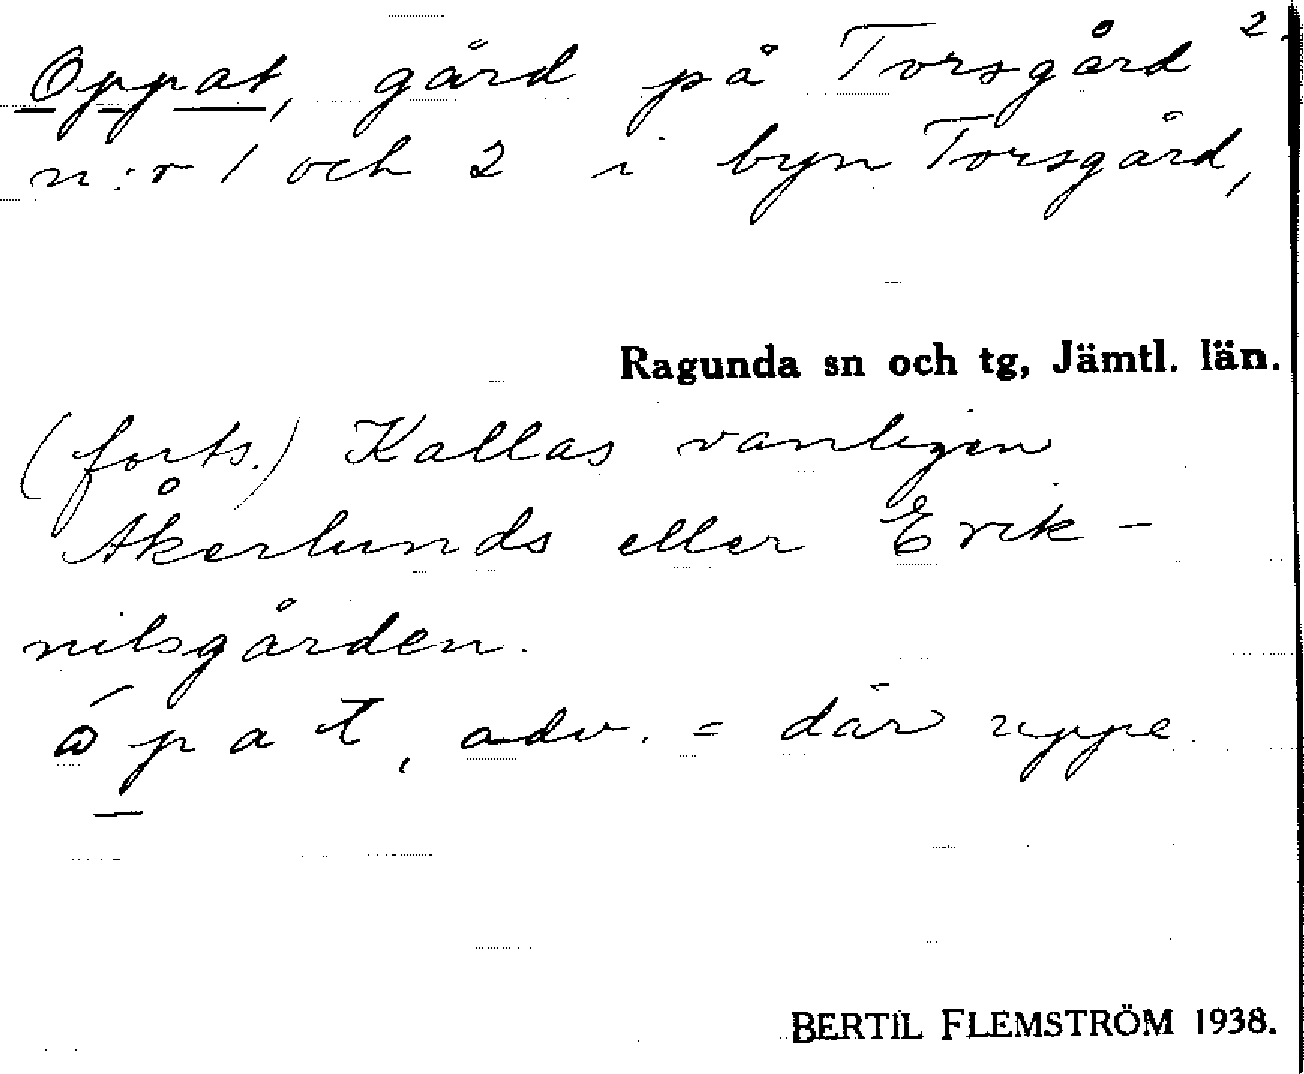 2.
Oppat, gård på Torsgård
n:r 1 och 2 i byn Torsgård,
Ragunda sn och tg, Jämtl. län.
(forts.) Kallas vanligen
Åkerlunds eller Erik-
nilsgården.
ápat, adv. = där uppe.
BERTIL FLEMSTRÖM 1938.